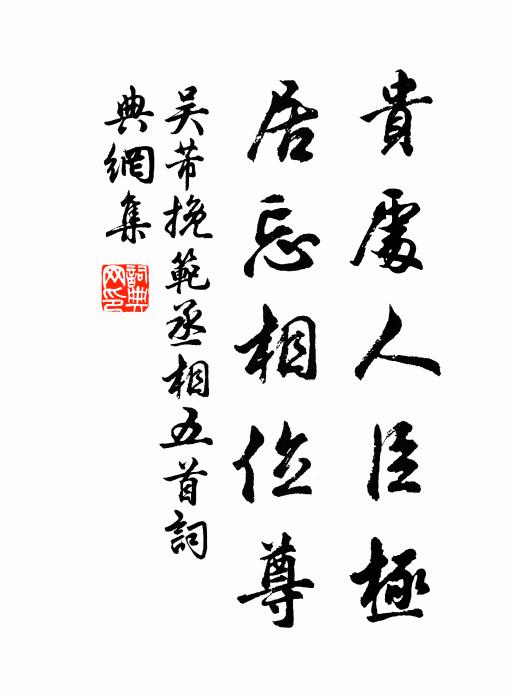 貴處人臣極
居忘相位尊
吳芾挽範丞相五首詞
典網集
詞典
网印